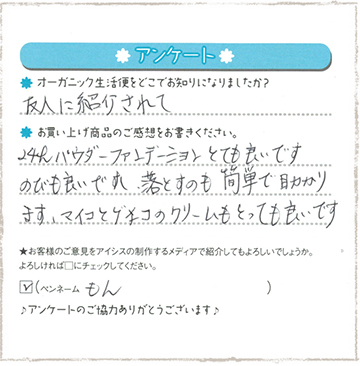 アンケート
オーガニック生活便をどこでお知りになりましたか?
友人に紹介されて
お買い上げ商品のご感想をお書きください。
24hパウダーファンデーションとても良いです
のびも良いですし 落とすのも簡単で助かり
ます、マイコとゲキコのクリームもとっても良いです
★お客様のご意見をアイシスの制作するメディアで紹介してもよろしいでしょうか。
よろしければ□にチェックしてください。
☑(ペンネーム もん )
♪アンケートのご協力ありがとうございます♪